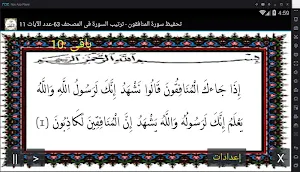 4:59
تحفيظ سورة المنافقون - ترتيب السورة في المصحف 63-عدد الآيات 11
باقي: 10
بِسْمِ اللَّهِ الرَّحْمَنِ الرَّحِيمِ
إِذَا جَاءَكَ الْمُنَافِقُونَ قَالُوا نَشْهَدُ إِنَّكَ لَرَسُولُ اللَّهِ وَاللَّهُ
يَعْلَمُ إِنَّكَ لَرَسُولُهُ وَاللَّهُ يَشْهَدُ إِنَّ الْمُنَافِقِينَ لَكَاذِبُونَ (1)
إعدادات
X